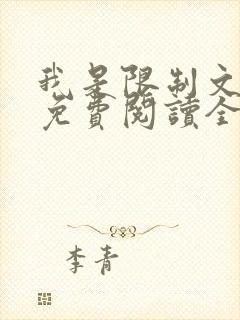 我是限制文
免費閱讀全
李青